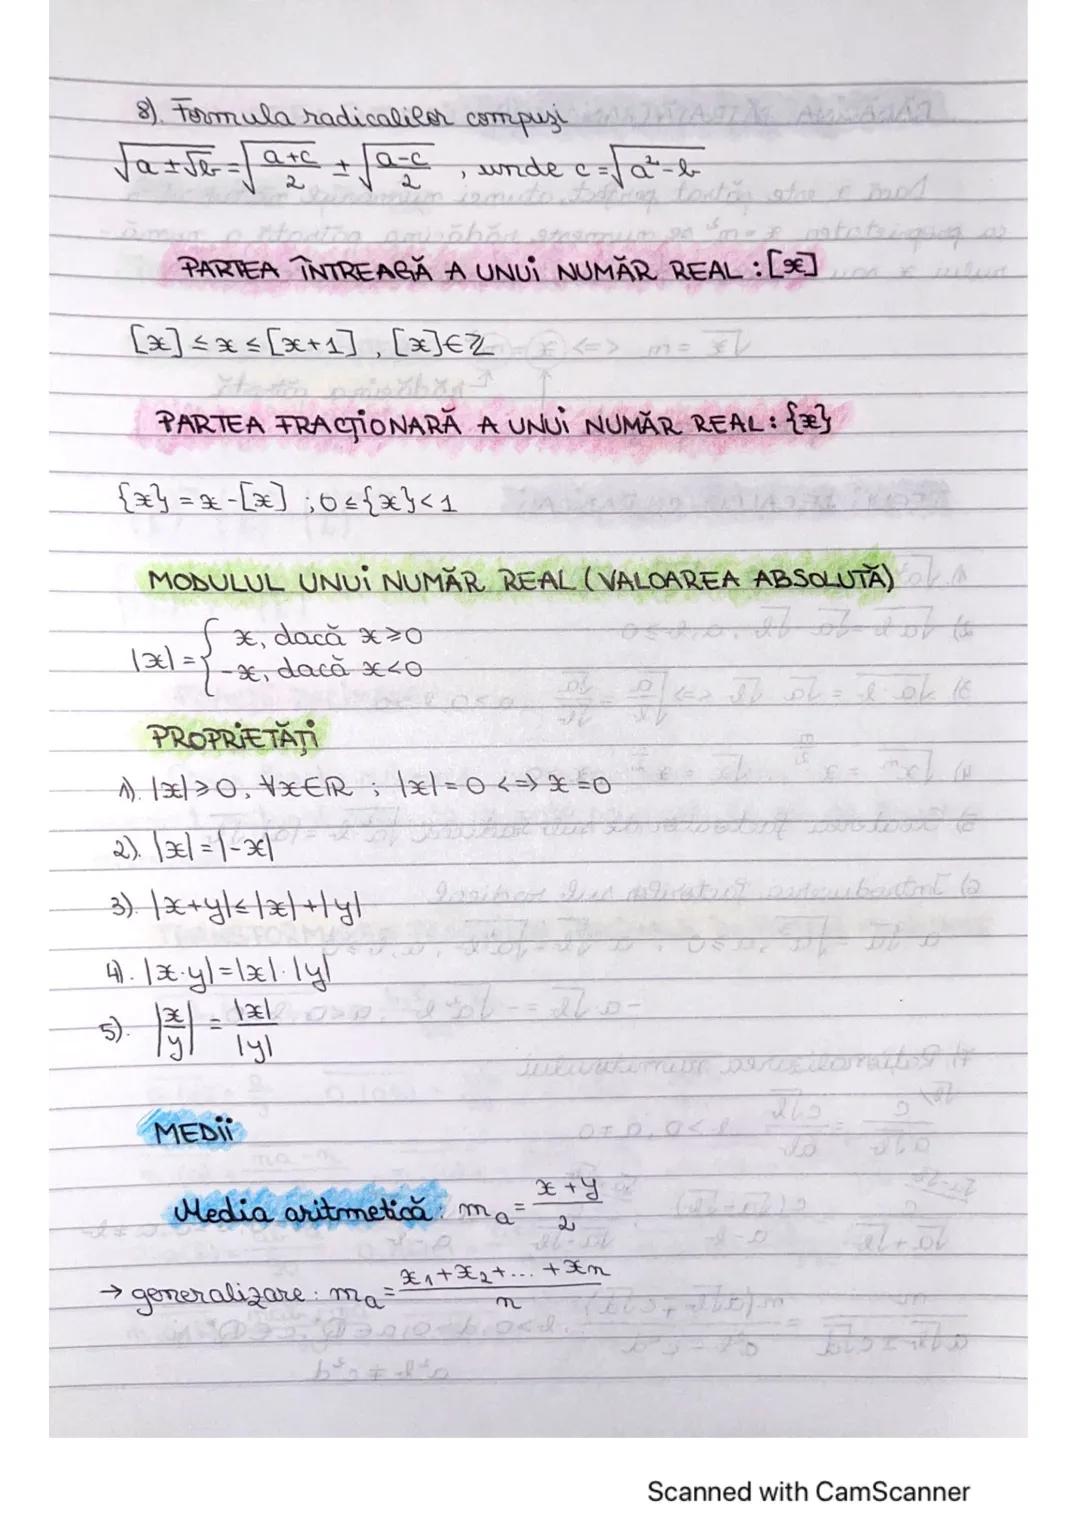 8). Formula radicalilor compuși
√(a±√b) = √((a+c)/2) ± √((a-c)/2) , unde c = √(a²-b)
PARTEA ÎNTREAGĂ A UNUI NUMĂR REAL : [x]
[x] ≤ x ≤ [x+1] , [x]∈ℤ
PARTEA FRACȚIONARĂ A UNUI NUMĂR REAL : {x}
{x} = x - [x] ; 0 ≤ {x} < 1
MODULUL UNUI NUMĂR REAL (VALOAREA ABSOLUTĂ)
|x| = { x, dacă x ≥ 0
-x, dacă x < 0
PROPRIETĂȚI
1). |x| ≥ 0, ∀x∈ℝ ; |x| = 0 <=> x = 0
2). |x| = |-x|
3). |x+y| ≤ |x| + |y|
4). |x·y| = |x|·|y|
5). |x/y| = |x|/|y|
MEDII
Media aritmetică : mₐ = (x+y)/2
→ generalizare : mₐ = (x₁+x₂+...+xn)/n
Scanned with CamScanner